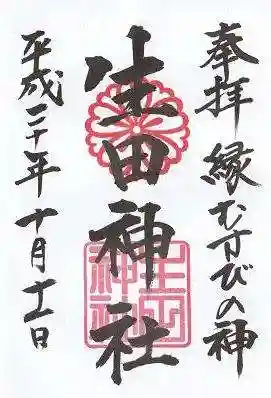 奉拝 縁むすびの神
生田神社
生田神社
平成二十年十月十一日